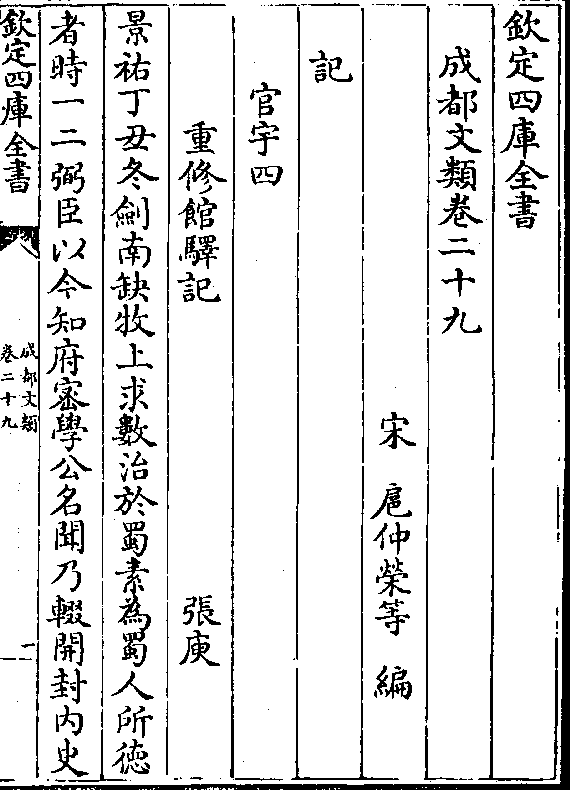 欽定四庫全書
成都文類卷二十九
宋 扈仲榮等 編
記
官宇四
重修館驛記 張庚
景祐丁丑冬劍南缺牧上求數治於蜀素為蜀人所徳
者時一二弼臣以今知府密學公名聞乃輟開封内史
欽定四庫全書
成都文類
卷二十九
一